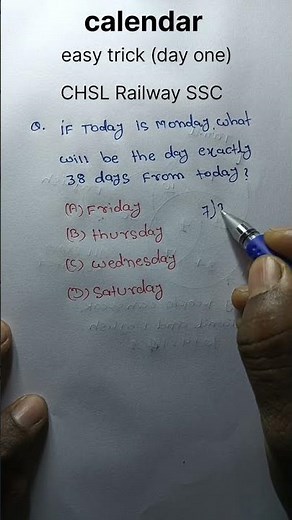 calendar
easy trick (day one)
CHSL Railway SSC
Q. if Today is Monday, what
will be the day exactly
38 days From today?
(A) Friday
7)3
(B) thursday
(C) wednesday
(D) Saturday